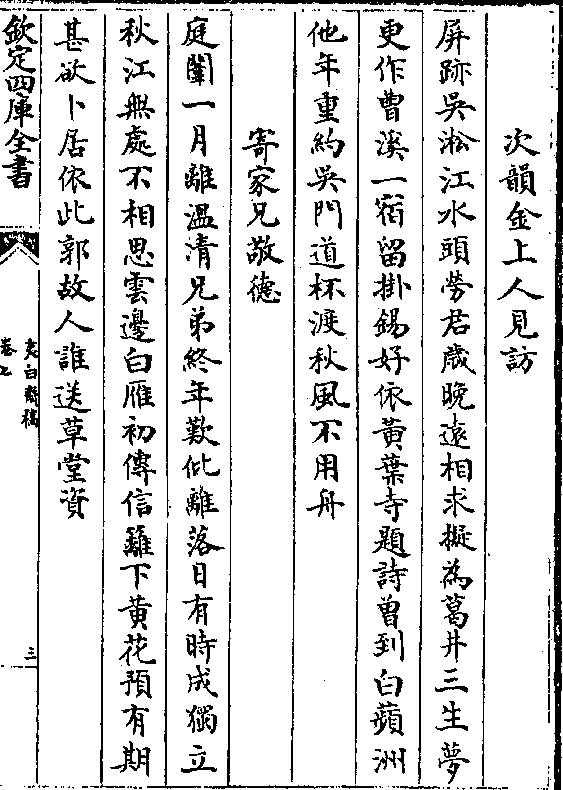 次韻金上人見訪
屏跡吳淞江水頭勞君歲晚遠相求擬為葛井三生夢
更作曹溪一宿留掛錫好依黃葉寺題詩曾到白蘋洲
他年重約吳門道杯渡秋風不用舟
寄家兄敬德
庭闈一月離溫凊兄弟終年歎仳離落日有時成獨立
秋江無處不相思雲邊白雁初傳信籬下黃花預有期
甚欲卜居依此郭故人誰送草堂資
欽定四庫全書
夷白齋稿
卷七
三